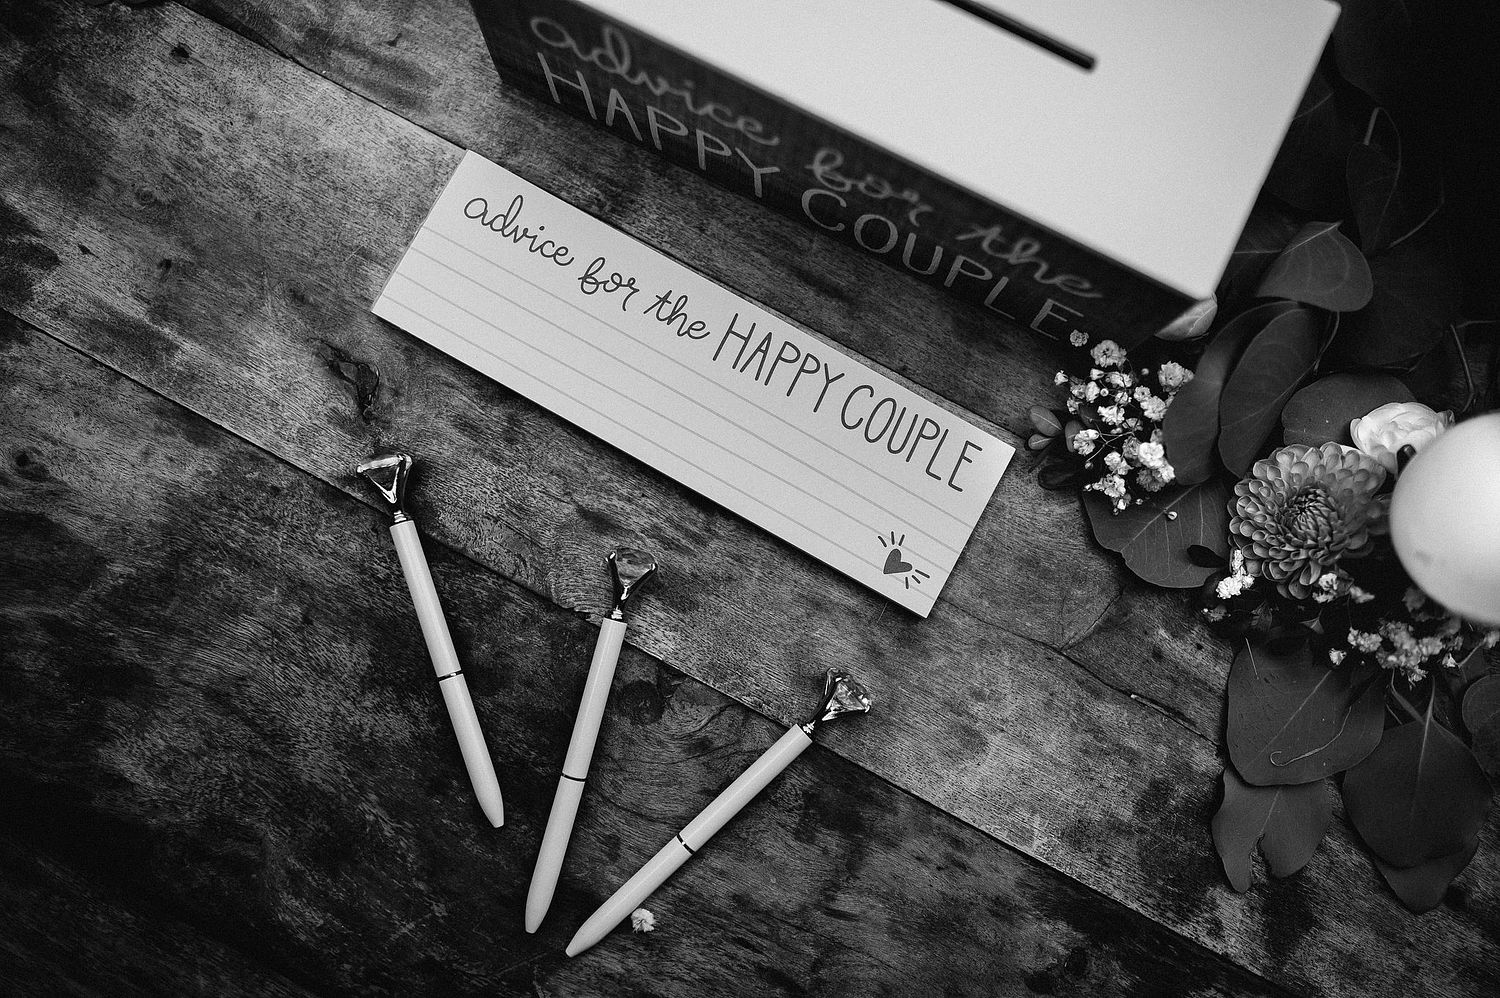 advice for the
HAPPY COUPLE
advice for the HAPPY COUPLE